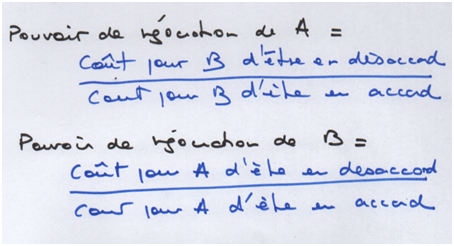 Pouvoir de négociation de A =
Coût pour B d'être en désaccord
Cout pour B d'être en accord
Pouvoir de négociation de B =
Coût pour A d'être en desaccord
Cout pour A d'être en accord